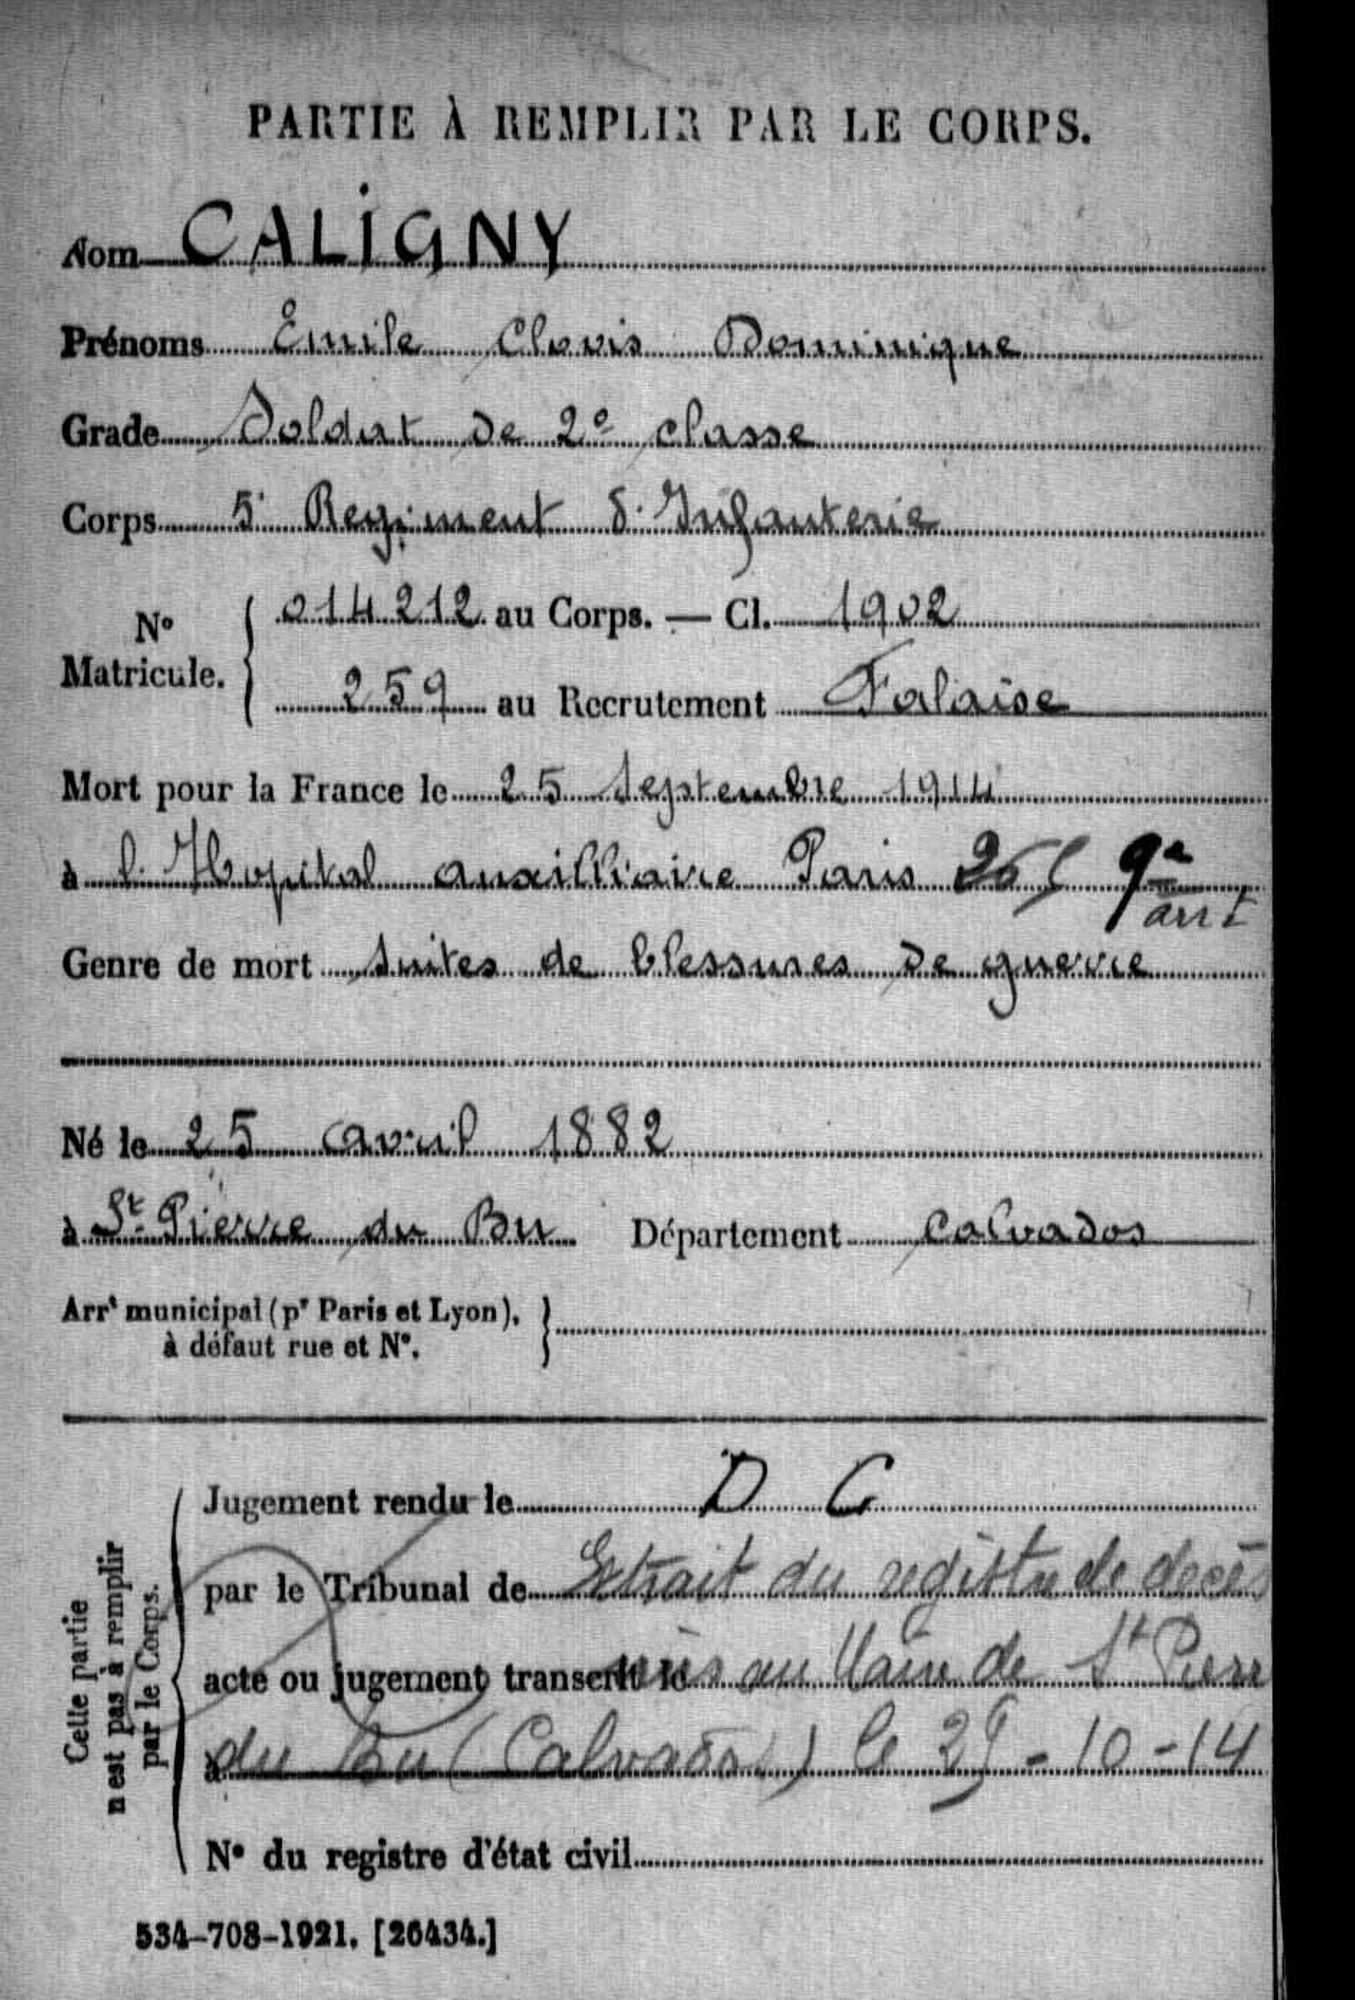 PARTIE À REMPLIR PAR LE CORPS.
Nom CALIGNY
Prénoms Émile Clovis Dominique
Grade Soldat de 2e classe
Corps 5e Regiment d'Infanterie
No Matricule. 014212 au Corps. — Cl. 1902
259 au Recrutement Falaise
Mort pour la France le 25 Septembre 1914
à l'Hopital auxilliaire Paris 9e arrt
Genre de mort Suites de blessures de guerre
Né le 25 avril 1882
à St Pierre du Bu Département Calvados
Arrt municipal (pr Paris et Lyon),
à défaut rue et No.
Cette partie n'est pas à remplir par le Corps.
Jugement rendu le D C
par le Tribunal de Extrait du registre de décès
acte ou jugement transcrit le au Maire de St Pierre
à du Bu (Calvados) le -10-14
No du registre d'état civil
534-708-1921. [26434.]